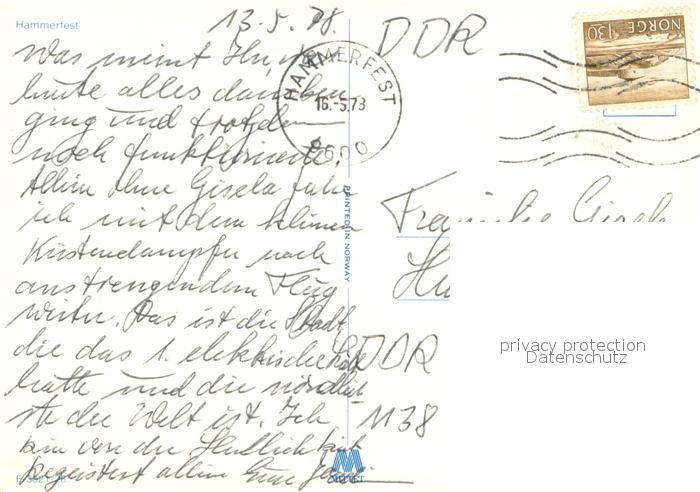 Hammerfest
13.5.78.
Was meint Ihr
heute alles daneben
ging und trotzdem
noch funktionierte.
Allein ohne Gisela fahre
ich mit dem kleinen
Küstendampfer nach
anstrengendem Flug
weiter. Das ist die Stadt,
die das 1. elektrische
hatte und die nördlich
ste der Welt ist. Ich
bin von der Herrlichkeit
begeistert allein Eure
PRINTED IN NORWAY
MITTET
HAMMERFEST
16.-5.78
9600
NORGE 130
DDR
Familie
DDR
1138
privacy protection
Datenschutz